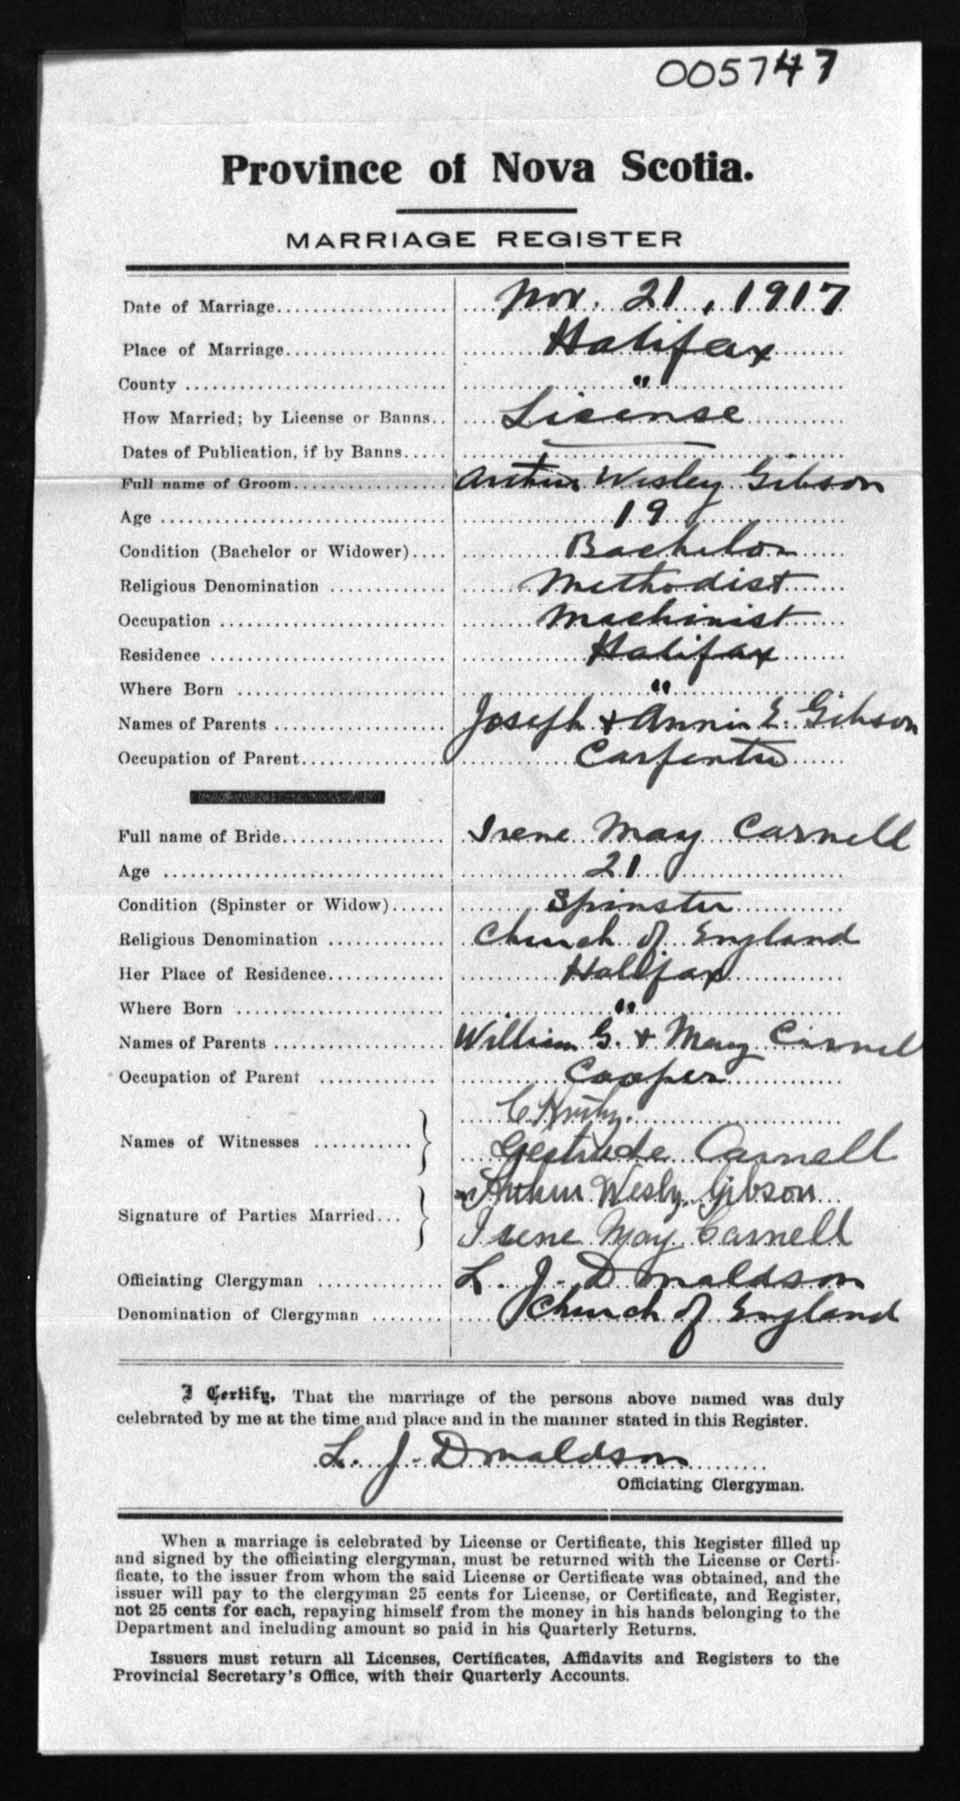 005747
Province of Nova Scotia.
MARRIAGE REGISTER
Date of Marriage.................... Nov. 21, 1917
Place of Marriage................. Halifax
County ........................... "
How Married; by License or Banns.. License
Dates of Publication, if by Banns.....
Full name of Groom................ Arthur Wesley Gibson
Age ............................. 19
Condition (Bachelor or Widower).... Bachelor
Religious Denomination ............ Methodist
Occupation ........................ Machinist
Residence ......................... Halifax
Where Born ...................... "
Names of Parents .................. Joseph & Annie E. Gibson
Occupation of Parent............... Carpenter
Full name of Bride.................. Irene May Carnell
Age ............................. 21
Condition (Spinster or Widow)...... Spinster
Religious Denomination ............ Church of England
Her Place of Residence............. Halifax
Where Born ...................... "
Names of Parents .................. William G. & Mary Carnell
Occupation of Parent ............. Cooper
Names of Witnesses ...........
Gertrude Carnell
Signature of Parties Married... Arthur Wesly Gibson
Irene May Carnell
Officiating Clergyman ............. L. J. Donaldson
Denomination of Clergyman ........ Church of England
I Certify, That the marriage of the persons above named was duly
celebrated by me at the time and place and in the manner stated in this Register.
L. J. Donaldson
Officiating Clergyman.
When a marriage is celebrated by License or Certificate, this Register filled up
and signed by the officiating clergyman, must be returned with the License or Certi-
ficate, to the issuer from whom the said License or Certificate was obtained, and the
issuer will pay to the clergyman 25 cents for License, or Certificate, and Register,
not 25 cents for each, repaying himself from the money in his hands belonging to the
Department and including amount so paid in his Quarterly Returns.
Issuers must return all Licenses, Certificates, Affidavits and Registers to the
Provincial Secretary's Office, with their Quarterly Accounts.